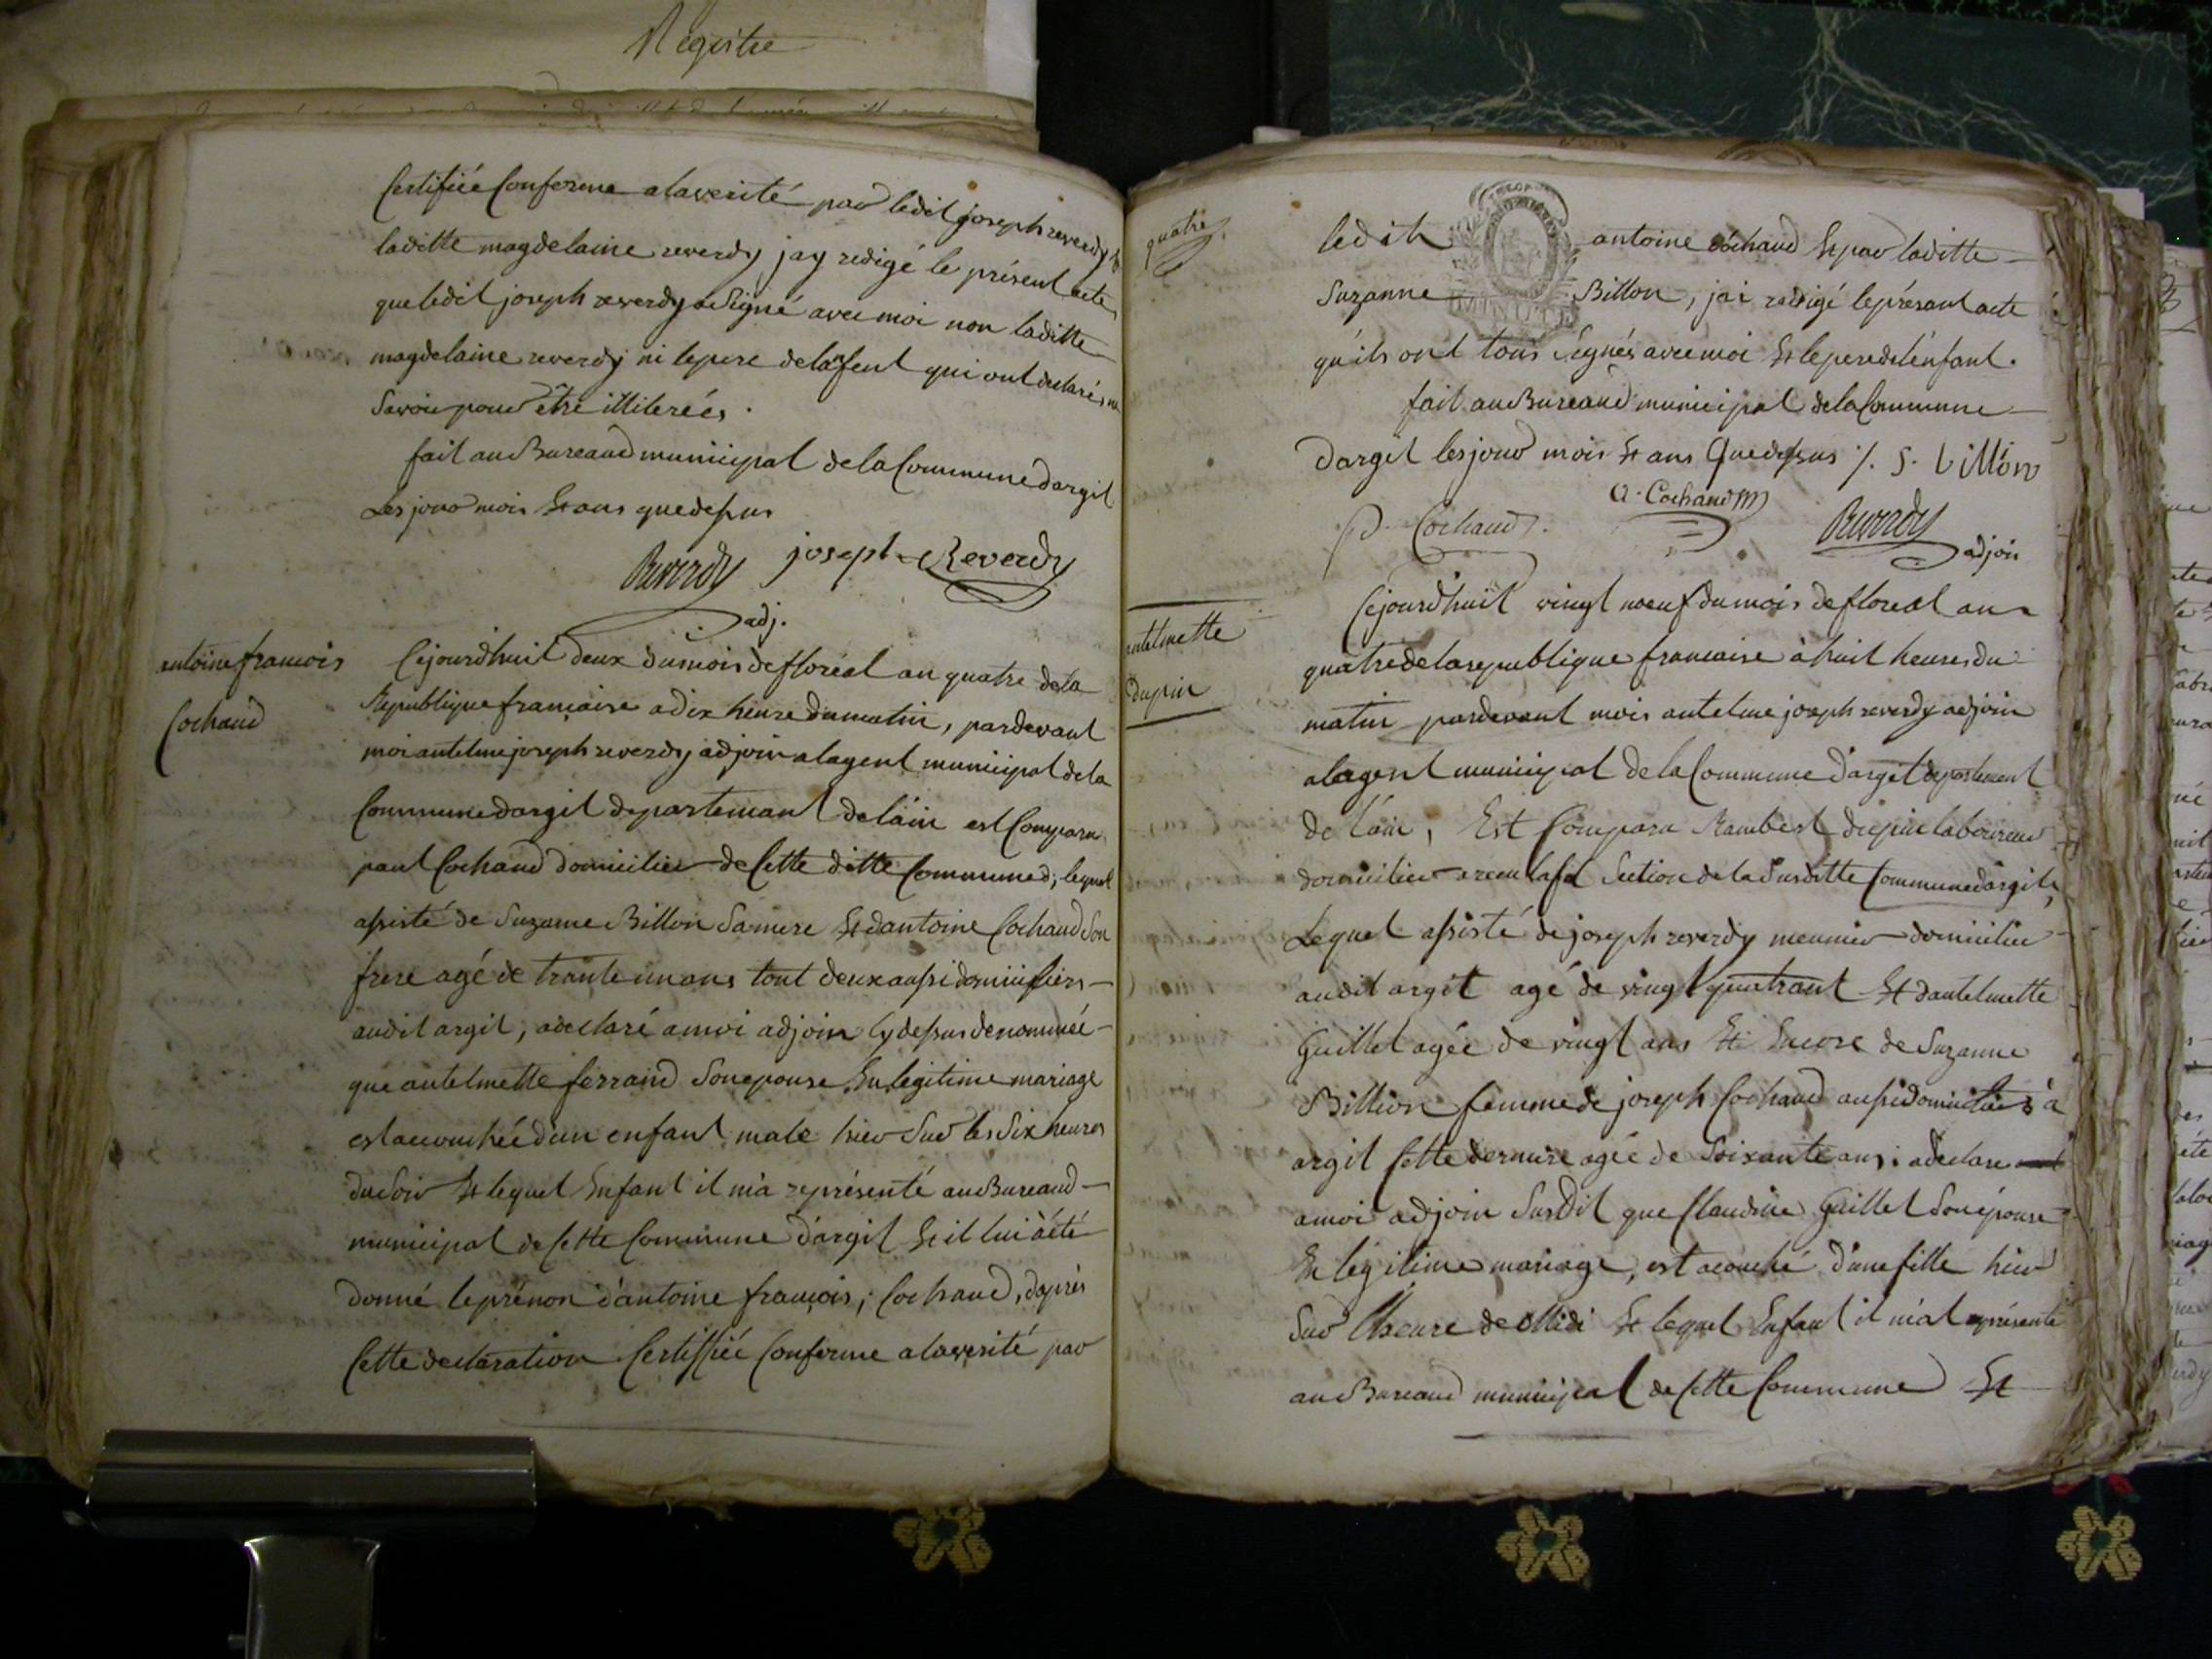 Registre
Certifiée Conforme alaverité par ledit joseph reverdy &
laditte magdelaine reverdy jay redigé le présent acte
que ledit joseph reverdy a Signé avec moi non laditte
magdelaine reverdy ni lepere delanfent qui ont declarés ne
Savoir pour être illiterées.
fait au Bureaud municipal delaCommune dargit
Les jour mois & ans quedessus
Reverdy joseph Reverdy
adj.
antoine francois
Cochaud
Cejourdhuit deux dumois defloréal an quatre dela
Republique française a dix heure dumatin, pardevant
moi antelme joseph reverdy adjoin alagent municipal dela
Commune dargit departemant delain est Comparu
paul Cochaud domicilier de Cette ditte Communed; lequel
assisté de Suzanne Billon Samere & dantoine Cochaud Son
frere agé de trante un ans tout deux aussi domiciliers
audit argit, adeclaré amoi adjoin Cydessus denommée
que antelmette ferraind Sonepouse En legitime mariage
est acouchée dun enfant male hier Sur les Six heures
duSoir & lequel Enfant il m'a représenté auBureaud
municipal de Cette Commune dargit & il lui àété
donné leprénon dantoine françois; Cochaud, daprès
Cette declaration Certiffiée Conforme alaverité par
quatre
ledit antoine Cochaud & par laditte
Suzanne Billon, jai redigé leprésant acte
MINUTE
qu'ils ont tous Signés avec moi & leperedelénfant.
fait auBureaud municipal delaCommune
Dargit les jour mois & ans Quedessus /. S. billon
P. Cochaud. a. Cochaud Reverdy
adjoin
antelmette
Dupin
Cejourdhuit vingt noeuf dumois defloreal an
quatre delarepublique francaise à huit heures du
matin pardevant mois antelme joseph reverdy adjoin
alagent municipal delaCommune dargit departement
de lain, Est Comparu Rambert dupin laboureur
domicilier Section de la Susditte Commune dargit,
Lequel assisté de joseph reverdy meunier domicilier
audit argit agé de vingt quatrant & dantelmette
Guillet agée de vingt ans & Encore de Suzanne
Billion femme de joseph Cochaud aussi domiciliers à
argit Cette derniere agée de Soixante ans; adeclare
amoi adjoin Susdit que Claudine Guillet Sonépouse
En légitime mariage, est acouché d'une fille hier
Sur lheure de Midi & lequel Enfant il m'at représenté
auBureaud municipal de Cette Commune &